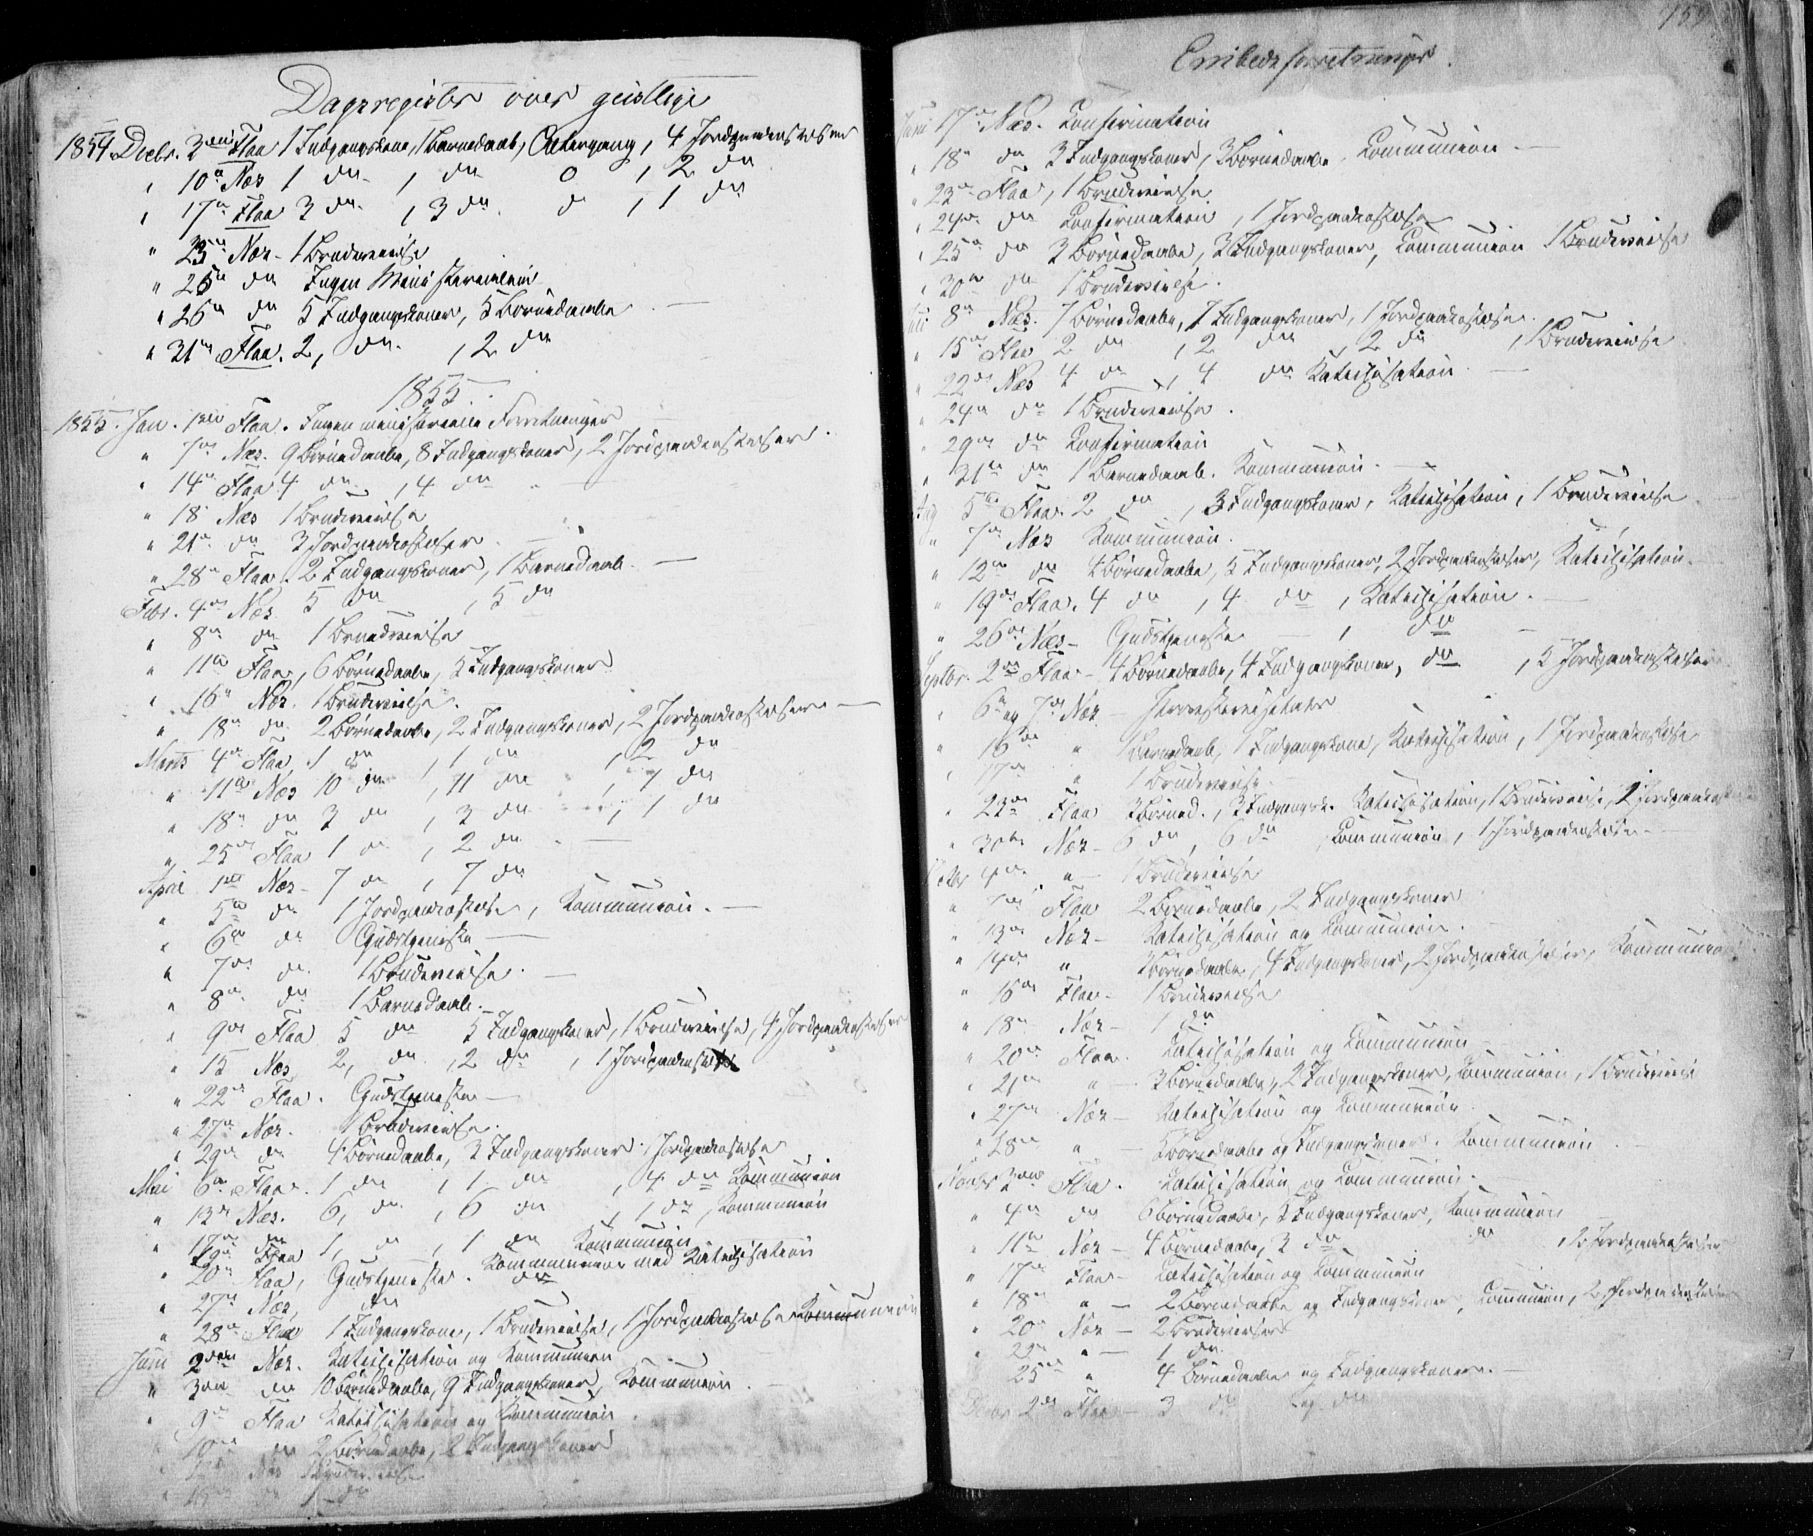 Dagsregister over geistlige
1854. Decbr. 3die Flaa 1 Indgangskone, 1 Barnedaab, 4 Jordpaakastelser
" 10de Næs 1 do 1 do 0 , 2 do
" 17de Flaa 3 do , 3 do 0 , 1 do
" 23de Næs - 1 Brudevielse
" 25de do Ingen Ministerialia
" 26de do 5 Indgangskoner, 5 Børnedaabe
" 31te Flaa. 2, do , 2 do
1855.
1855. Jan. 1ste Flaa. Ingen ministerielle Forretninger
" 7de Næs. 9 Børnedaabe, 8 Indgangskoner, 2 Jordpaakastelser.
" 14de Flaa 4 do , 4 do
" 18 Næs 1 Brudevielse
" 21de do 3 Jordpaakastelser
" 28de Flaa. 2 Indgangskoner, 1 Barnedaab.
Febr. 4de Næs 5 do , 5 do
" 8de do 1 Brudevielse
" 11te Flaa, 6 Børnedaabe, 5 Indgangskoner
" 16de Næs. 1 Brudevielse.
" 18de do 2 Børnedaabe, 2 Indgangskoner, 2 Jordpaakastelser
Marts 4de Flaa 1 do , 1 do , 2 do
" 11te Næs 10 do , 11 do , 7 do
" 18de do 3 do , 3 do , 1 do
" 25de Flaa 1 do , 2 do
April 1ste Næs - 7 do , 7 do
" 5te do 1 Jordpaakastelse, Kommunion.
" 6te do Gudstjeneste
" 7de do 1 Brudevielse.
" 8de do 1 Barnedaab.
" 9de Flaa 5 do 5 Indgangskoner, 1 Brudevielse, 4 Jordpaakastelser
" 15 Næs 2, do , 2 do , 1 Jordpaakastelse
" 22de Flaa. Gudstjeneste
" 27de Næs. 1 Brudevielse.
" 29de do 4 Børnedaabe, 3 Indgangskoner 1 Jordpaakastelse
Mai 6te Flaa. 1 do , 1 do , 4 do Kommunion
" 13de Næs. 6, do , 6 do , 1 do, Kommunion
" 17de do 1, do , 1 do Kommunion
19de Flaa Kommunion med Katechisation
" 20de Flaa, Gudstjeneste. do
" 27de Næs, do
" 28de Flaa 1 Indgangskone, 1 Brudevielse, 1 Jordpaakastelse Kommunion
Juni 2den Næs. Katechisation og Kommunion
" 3die do 10 Børnedaabe, 9 Indgangskoner, Kommunion
" 9de Flaa Katechisation og Kommunion
" 10de do 2 Børnedaabe, 2 Indgangskoner
Næs 1 Brudevielse
do 1 do
Embedsforretninger.
Juni 17de Næs. Confirmation
" 18de do 3 Indgangskoner, 3 Børnedaabe, Communion
" 23de Flaa, 1 Brudevielse
" 24de do Confirmation, 1 Jordpaakastelse
" 25de do 3 Børnedaabe, 3 Indgangskoner, Communion 1 Brudevielse
" 30te do 1 Brudevielse.
Juli 8de Næs. 7 Børnedaabe, 7 Indgangskoner, 1 Jordpaakastelse.
" 15de Flaa 2 do , 2 do , 2 do , 1 Brudevielse
" 22de Næs 4 do , 4 do Katechisation
" 24de do 1 Brudevielse.
" 29de do Confirmation
" 31te do 1 Barnedaab. Kommunion.
Aug 5te Flaa. 2 do , 3 Indgangskoner, Katechisation, 1 Brudevielse
" 7de Næs Kommunion.
" 12te do 4 Børnedaabe, 5 Indgangskoner, 2 Jordpaakastelser, Katechisation.
" 19de Flaa. 4 do , 4 do , Katechisation.
" 26de Næs - Gudstjeneste , do
Septbr. 2den Flaa - 4 Børnedaabe, 4 Indgangskoner, do , 5 Jordpaakastelser
" 6te og 7de Næs - Provstevisitats
" 16de " 1 Barnedaab, 1 Indgangskone, Katechisation, 1 Jordpaakastelse
" 17de " 1 Brudevielse.
" 23de Flaa 3 Børned., 3 Indgangsk. Katechisation, 1 Brudevielse, 2 Jordpaakastelser
" 30te Næs - 6 do , 6 do , Communion, 1 Jordpaakastelse.
Octbr 4de " - 1 Brudevielse
" 7de Flaa 2 Børnedaabe, 2 Indgangskoner
" 13de Næs - Katechisation og Communion.
" 14de " 3 Børnedaabe, 4 Indgangskoner, 2 Jordpaakastelser, Kommunion
" 16de Flaa - 1 Brudevielse
" 18de Næs - 1 do
" 20de Flaa. Katechisation og Communion
" 21de " - 3 Børnedaabe, 2 Indgangskoner, Communion, 1 Brudevielse
" 27de Næs - Katechisation og Communion.
" 28de " - 5 Børnedaabe og Indgangskoner. Kommunion
Novbr 3die Flaa. Katechisation og Communion.
" 4de do 6 Børnedaabe, Indgangskoner, Kommunion
" 11te Næs - 4 Børnedaabe, 3 do do , Jordpaakastelser
" 17de Flaa - Katechisation og Communion
" 18de " - 2 Børnedaabe og Indgangskoner, Communion, 2 Jordpaakastelser
" 20de Næs - 2 Brudevielser
" " - 1 do
25de " 4 Børnedaabe og Indgangskoner. -
2den Flaa - 3 do og do